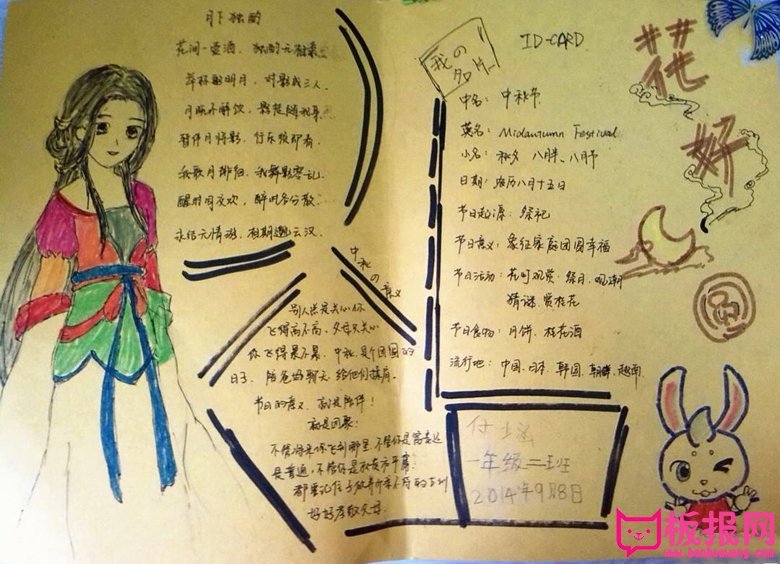 月下独酌
花间一壶酒，独酌无相亲。
举杯邀明月，对影成三人。
月既不解饮，影徒随我身。
暂伴月将影，行乐须即春。
我歌月徘徊，我舞影零乱。
醒时同交欢，醉时各分散。
永结无情游，相期邈云汉。
中秋の意义
别人总是关心你
飞得高不高，父母只关心
你飞得累不累，中秋是个团圆的
日子，陪爸妈聊天，给他们揉肩。
节日的意义，就是陪伴！
就是回家！
不管将来你飞到哪里，不管你是富贵还
是普通，不管你是
好好孝敬父母
我の名片
ID-CARD
中名：中秋节
英名：Midautumn Festival
小名：秋夕 八月半、八月节
日期：农历八月十五日
节日起源：祭祀
节日意义：象征家庭团圆幸福
节日活动：花灯观赏 祭月，观潮
猜谜，赏桂花
节日食物：月饼、桂花酒
流行地：中国、日本、韩国、朝鲜、越南
一年级二班
2014年9月8日
花
好
月
圆
板报网
www.banbaowang.com